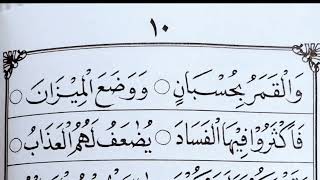 ١٠
وَالْقَمَرُ بِحُسْبَانٍ ○ وَوَضَعَ الْمِيْزَانَ ○
فَاَكْثَرُوْا فِيْهَا الْفَسَادَ ○ يُضٰعَفُ لَهُمُ الْعَذَابُ ○